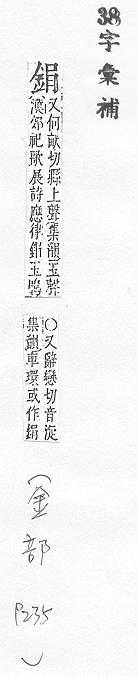 38字彙補
鋗
又何畎切縣上聲集韻玉聲
漢郊祀歌展詩應律鋗玉鳴
〇又辭戀切音旋
集韻車環或作鋗
(金部 P235)